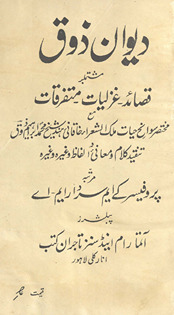 دیوان ذوق
مشتملبر
قصائد۔ غزلیات متفرقات
مع
مختصر سوانح حیات ملک الشعراء خاقانی ہند شیخ محمد ابراہیم ذوق
تنقید کلام و معانی الفاظ وغیرہ وغیرہ
مرتبہ
پروفیسر کے ایم سردار ایم۔اے
پبلشرز
آتما رام اینڈ سنز تاجران کتب
انارکلی لاہور
قیمت